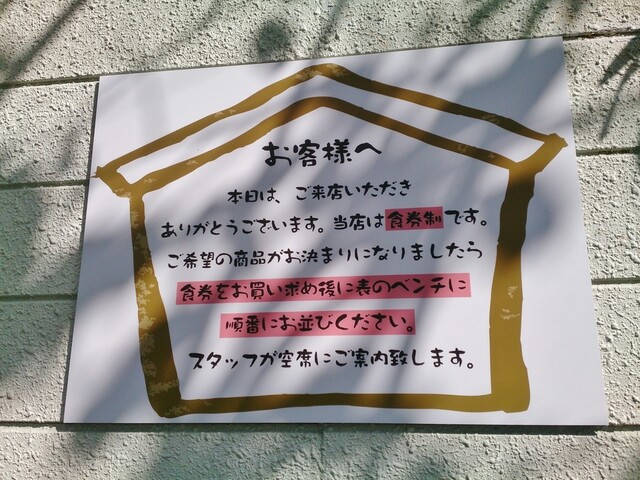 お客様へ
本日は、ご来店いただき
ありがとうございます。当店は食券制です。
ご希望の商品がお決まりになりましたら
食券をお買い求め後に表のベンチに
順番にお並びください。
スタッフが空席にご案内致します。